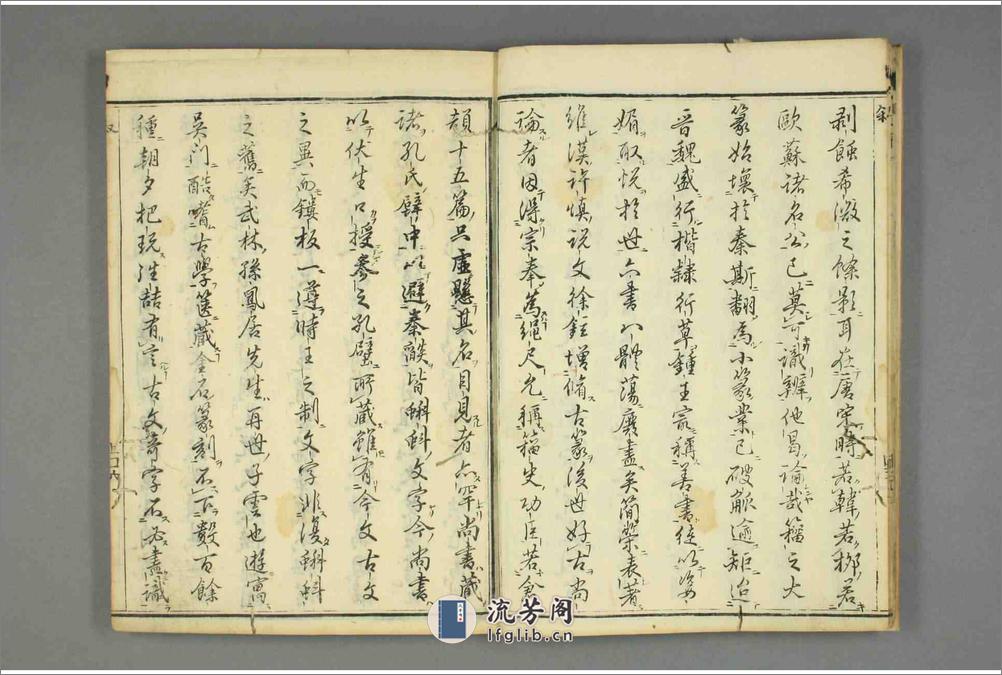 剥蝕希微之餘影耳在唐宋時若韓若柳若
歐蘇諸名公已莫可識辨他曷論哉籀之大
篆始壞於秦斯翻為小篆業已破觚逾矩迨
晋魏盛行楷隷行草鍾王最稱善書徒以姿
媚取悦於世六書八體蕩廢盡矣簡榮表著
維漢許慎説文徐鉉増脩古篆後世好古尚
論者因得宗奉為繩尺允稱籀史功臣若倉
頡十五篇只虚懸其名目見者亦罕尚書蔵
諸孔氏壁中以避秦燄皆蝌蚪文字今尚書
以伏生口授参之孔壁所蔵雖有今文古文
之異而鐫板一遵時王之制文字非復蝌蚪
之舊矣武林孫鳳居先生再世子雲也遊寓
吳门酷嗜古學篋蔵金石篆刻不下数百餘
種朝夕把玩注喆有言古文奇字不必盡識
叙
流芳阁
lfglib.cn